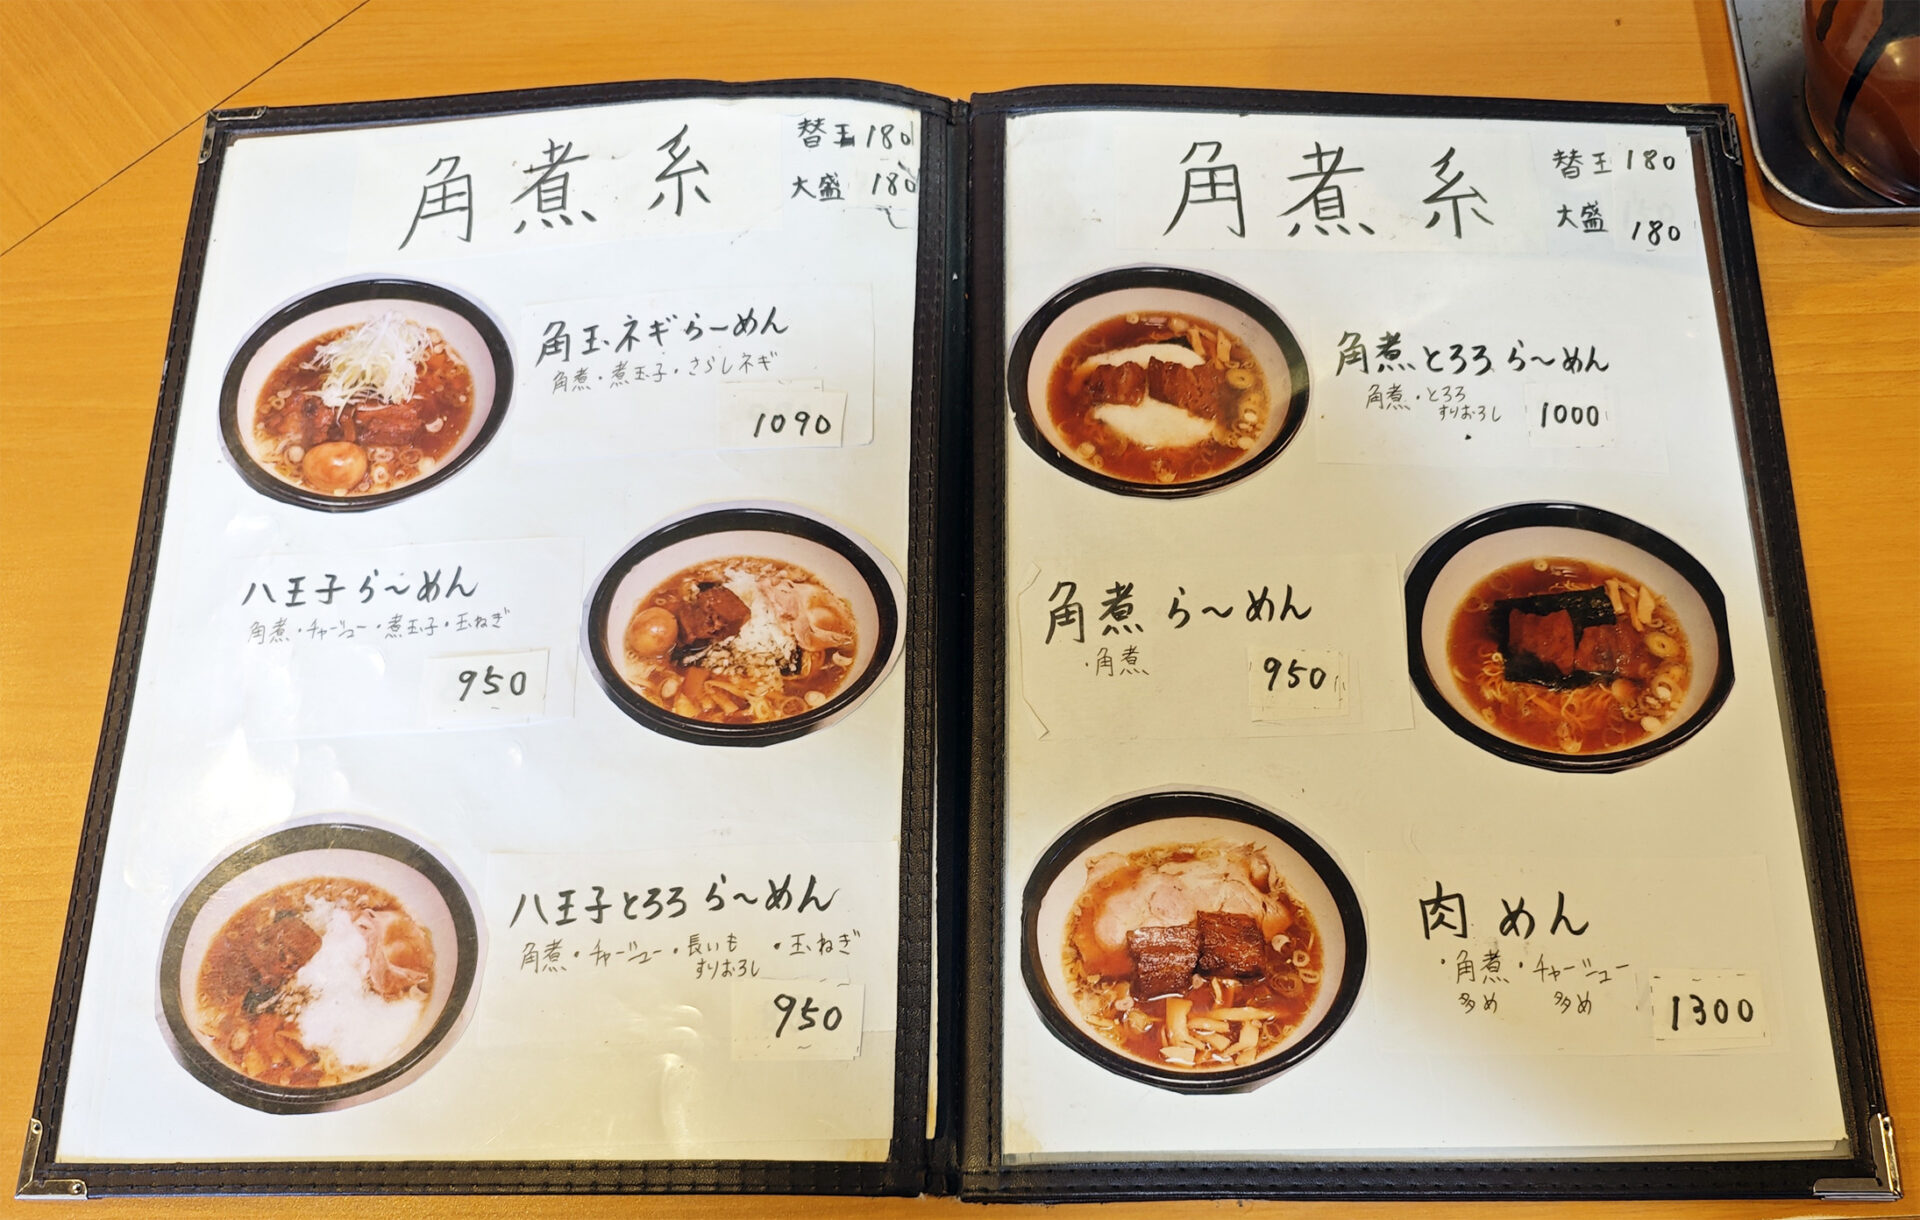 角煮系
替玉 180
大盛 180
角玉ネギらーめん
角煮・煮玉子・さらしネギ
1090
八王子ら〜めん
角煮・チャーシュー・煮玉子・玉ねぎ
950
八王子とろろら〜めん
角煮・チャーシュー・長いも ・玉ねぎ
すりおろし
950
角煮系
替玉 180
大盛 180
角煮とろろら〜めん
角煮・とろろ
すりおろし
1000
角煮ら〜めん
・角煮
950
肉めん
・角煮・チャーシュー
多め 多め
1300